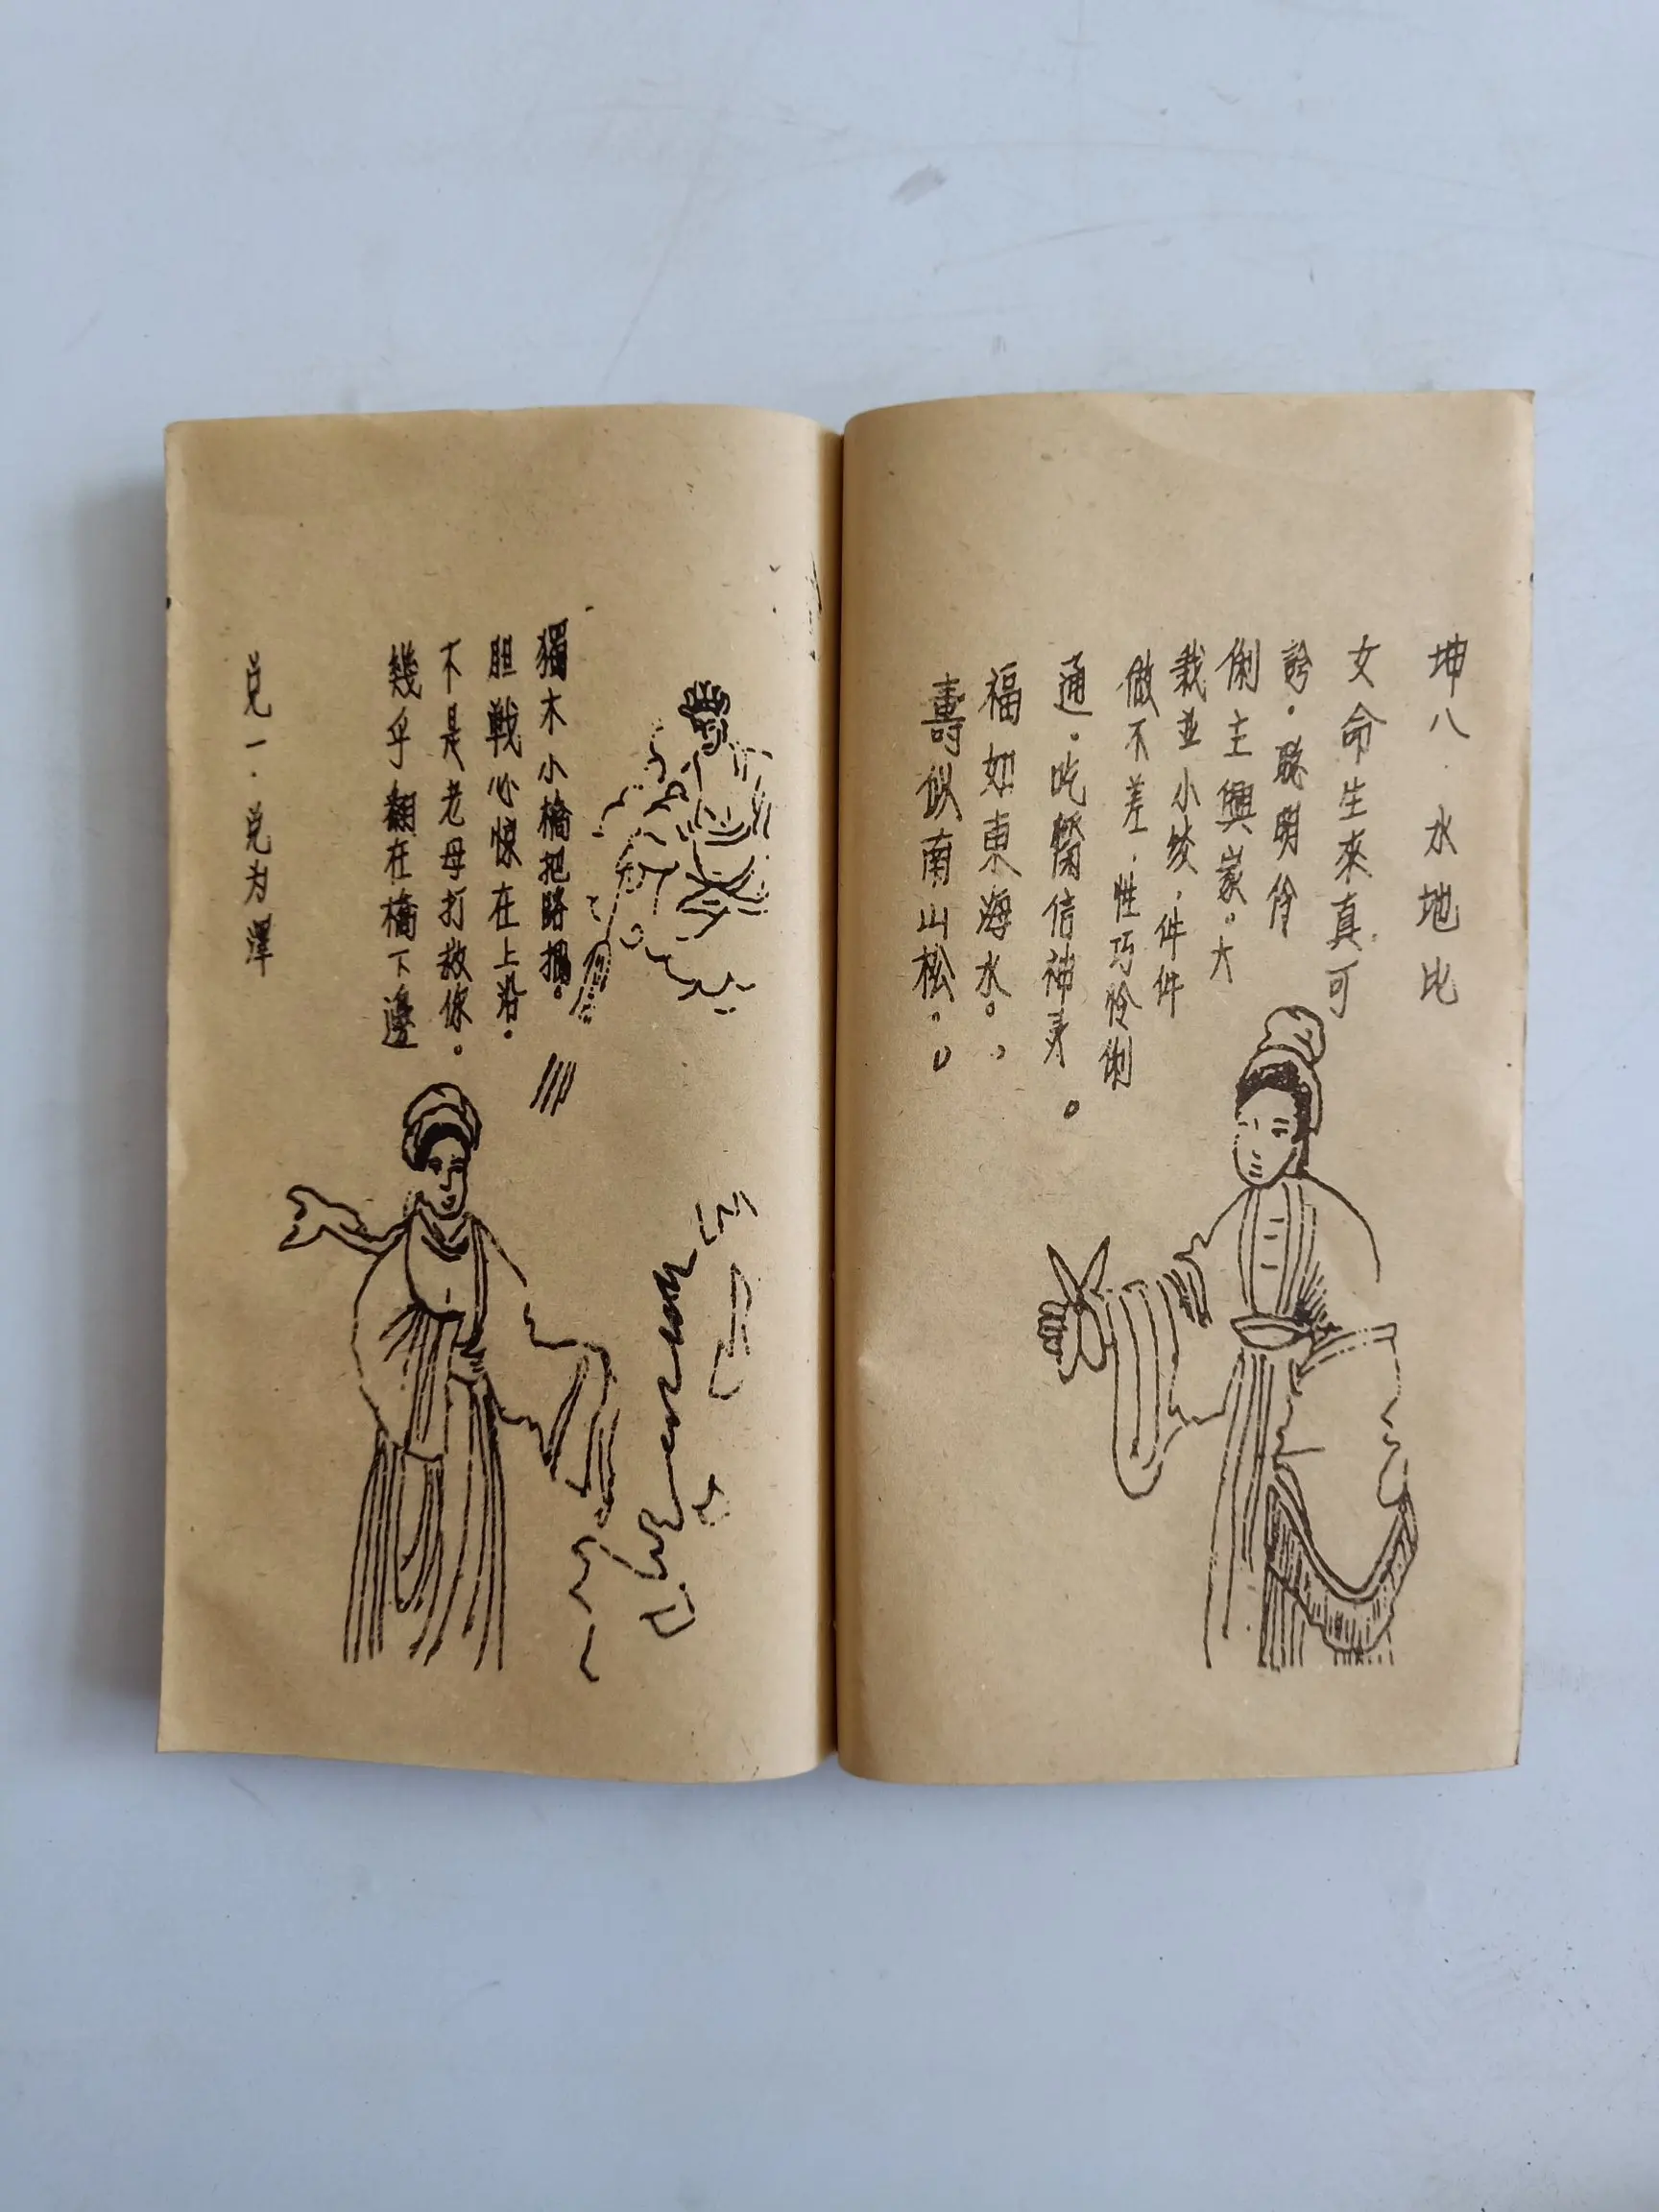 坤八 水地比
女命生來真可
誇。聰明伶
俐主興家。大
裁並小绫，件件
做不差，性巧怜俐
通。吃齋信神灵。
福如東海水。，
壽似南山松。。
獨木小橋把路攔。
胆戦心惊在上沿。
不是老母打救你。
幾乎翻在橋下邊
兑一.兑为澤